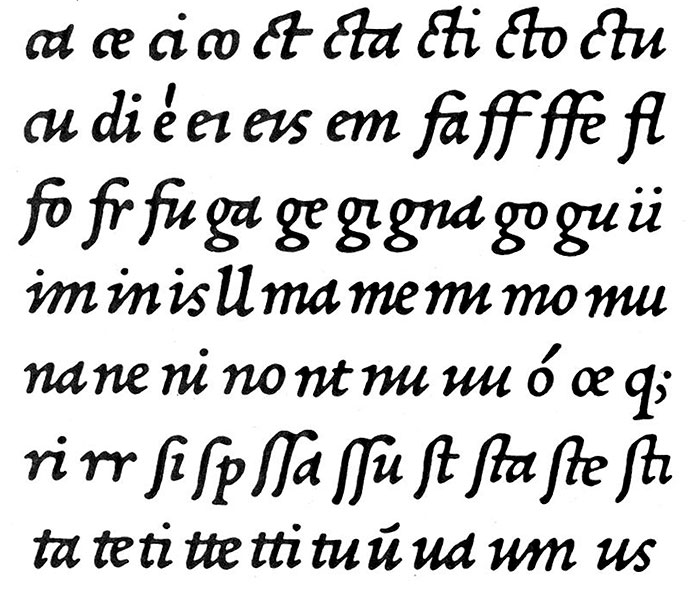 ca ce ci co ct cta cti cto ctu
cu di é eı eıs em fa ff ffe fl
fo fr fu ga ge gı gna go gu ii
im in is ll ma me mı mo mu
na ne ni no nt nu uu ó œ q;
ri rr ſı ſp ſſa ſſu ſt ſta ſte ſtı
ta te ti tte tti tu ū ua um us